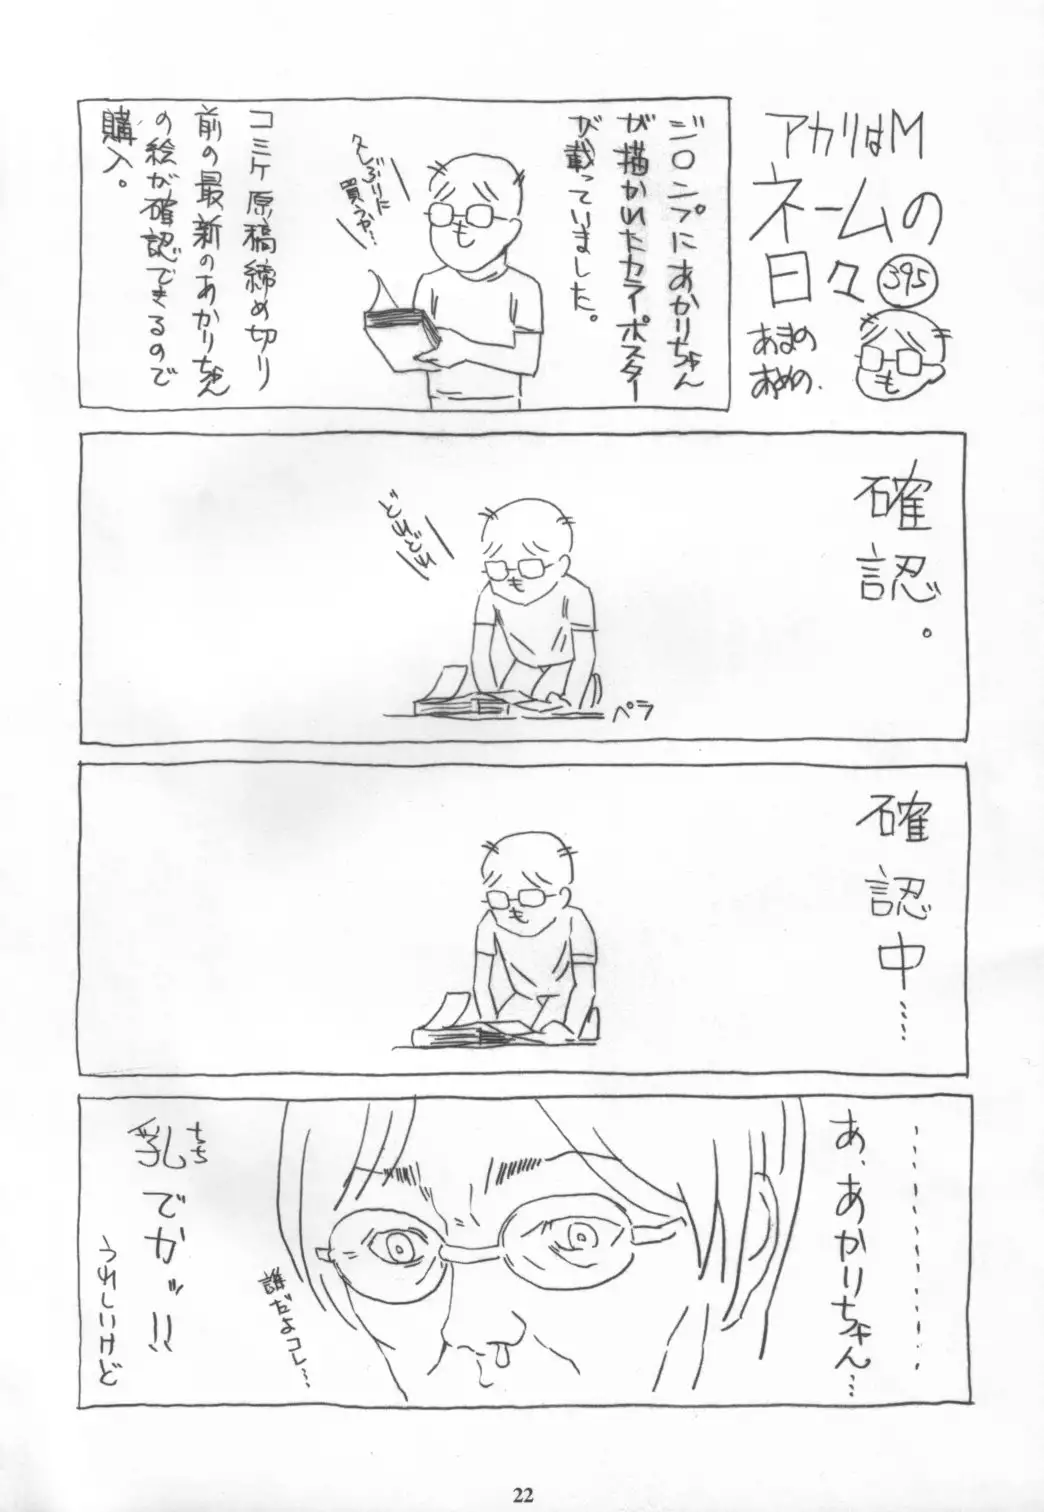 アカリはM
ネームの
日々 395
あまの
あめの.
ジロンプにあかりちゃん
が描かれたセライポスター
が載っていました。
久しぶりに
買うか…
コミケ原稿締め切り
前の最新のあかりちゃん
の絵が確認できるので
購入。
確認。
どれどれ
ペラ
確認中……
………………
あ、あかりちゃん…
誰だよコレ…
乳でかッ!!
ちち
うれしいけど
22